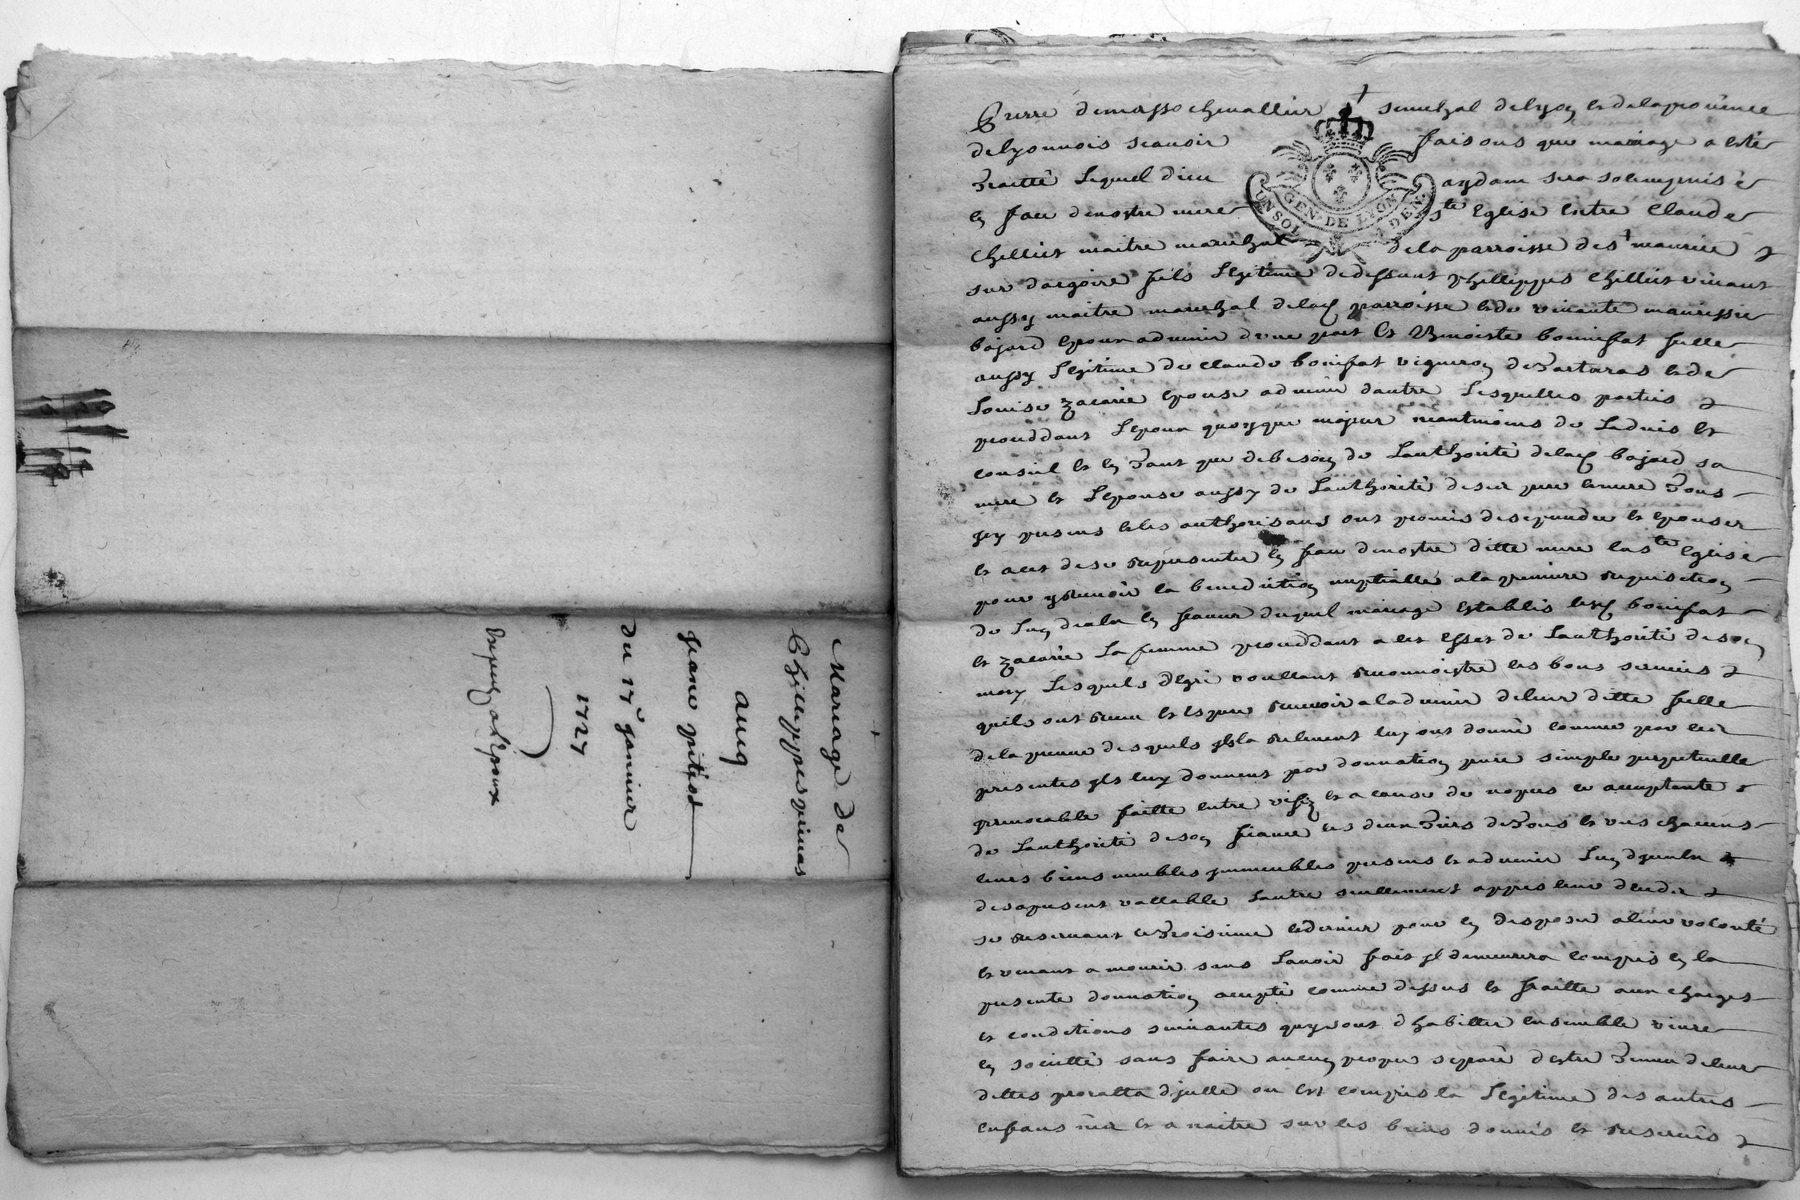 Mariage de
Phillyppes pinas
aueq
jeane pitiod
du 17e januier
1727
expeq a l'epoux
Pierre demasso cheuallier senechal de lyoq et de la prouince
de lyonnois scauoir faisons que mariage a esté
traitté lequel dieu aydant sera solempnisé
eq face de nostre mere ste Eglise entre Claude
Chilliet maitre marechal de la parroisse de st maurice
sur dargoire fils legitime de deffunt phillippes Chilliet viuant
aussy maitre marechal de laq parroisse et de viuante
bajard epoux aduenir d'une part Et Benoiste bonnifat fille
aussy legitime de claude bonifat vigneroq de tartaras et de
Louise zacarie epouse aduenir dautre Lesquelles parties
proceddant Lepoux quoyque majeur neantmoins de Laduis et
conseil et eq tant que de besoiq de Lauthorité de laq bajard sa
mere et Lepouse aussy de Lauthorité de ses pere et mere tous
jcy presens et les authorisans ont promis de se prendre et epouser
et a cet de se representer eq face de nostre ditte mere la ste Eglise
pour y receuoir la benedictioq nuptialle a la premiere requisitioq
de Luq deulx eq faueur duquel mariage establis lesq bonifat
et zacarie sa femme proceddant a cet effet de Lauthorité de soq
mary Lesquels degré voullant reconnoistre les bons seruices
quils ont receu et espere receuoir a laduenir de leur ditte fille
de la preuue desquels jls la releuent luy ont donné comme par les
presentes jls luy donnent par donnatioq pure simple perpetuelle
jrreuocable faitte entre vifs et a cause de nopces ce acceptante
de Lauthorité de soq fiancé les deux tiers de tous et vns chacuns
leurs biens meubles jmmeubles presens et aduenir Luq djceulx
des apresent vallable Lautre seullement appres leur decedz
se reseruant le troisieme et dernier pour eq disposer a leur volonté
et venant a mourir sans Lauoir fait jl demeurera compris eq la
presente donnatioq accepté comme dessus et faitte aux charges
et conditions suiuantes quy sont dhabitter ensemble viure
eq societté sans faire aucuq propre separé destre tenu de leurs
dettes proratta djcelle ou est compris la Legitime des autres
enfans nez et a naitre sur les biens donnés et reserués
GEN. DE LYON
UN SOL
DEN.